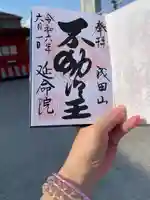 奉拝 成田山
不動明王
令和六年 延命院
六月一日